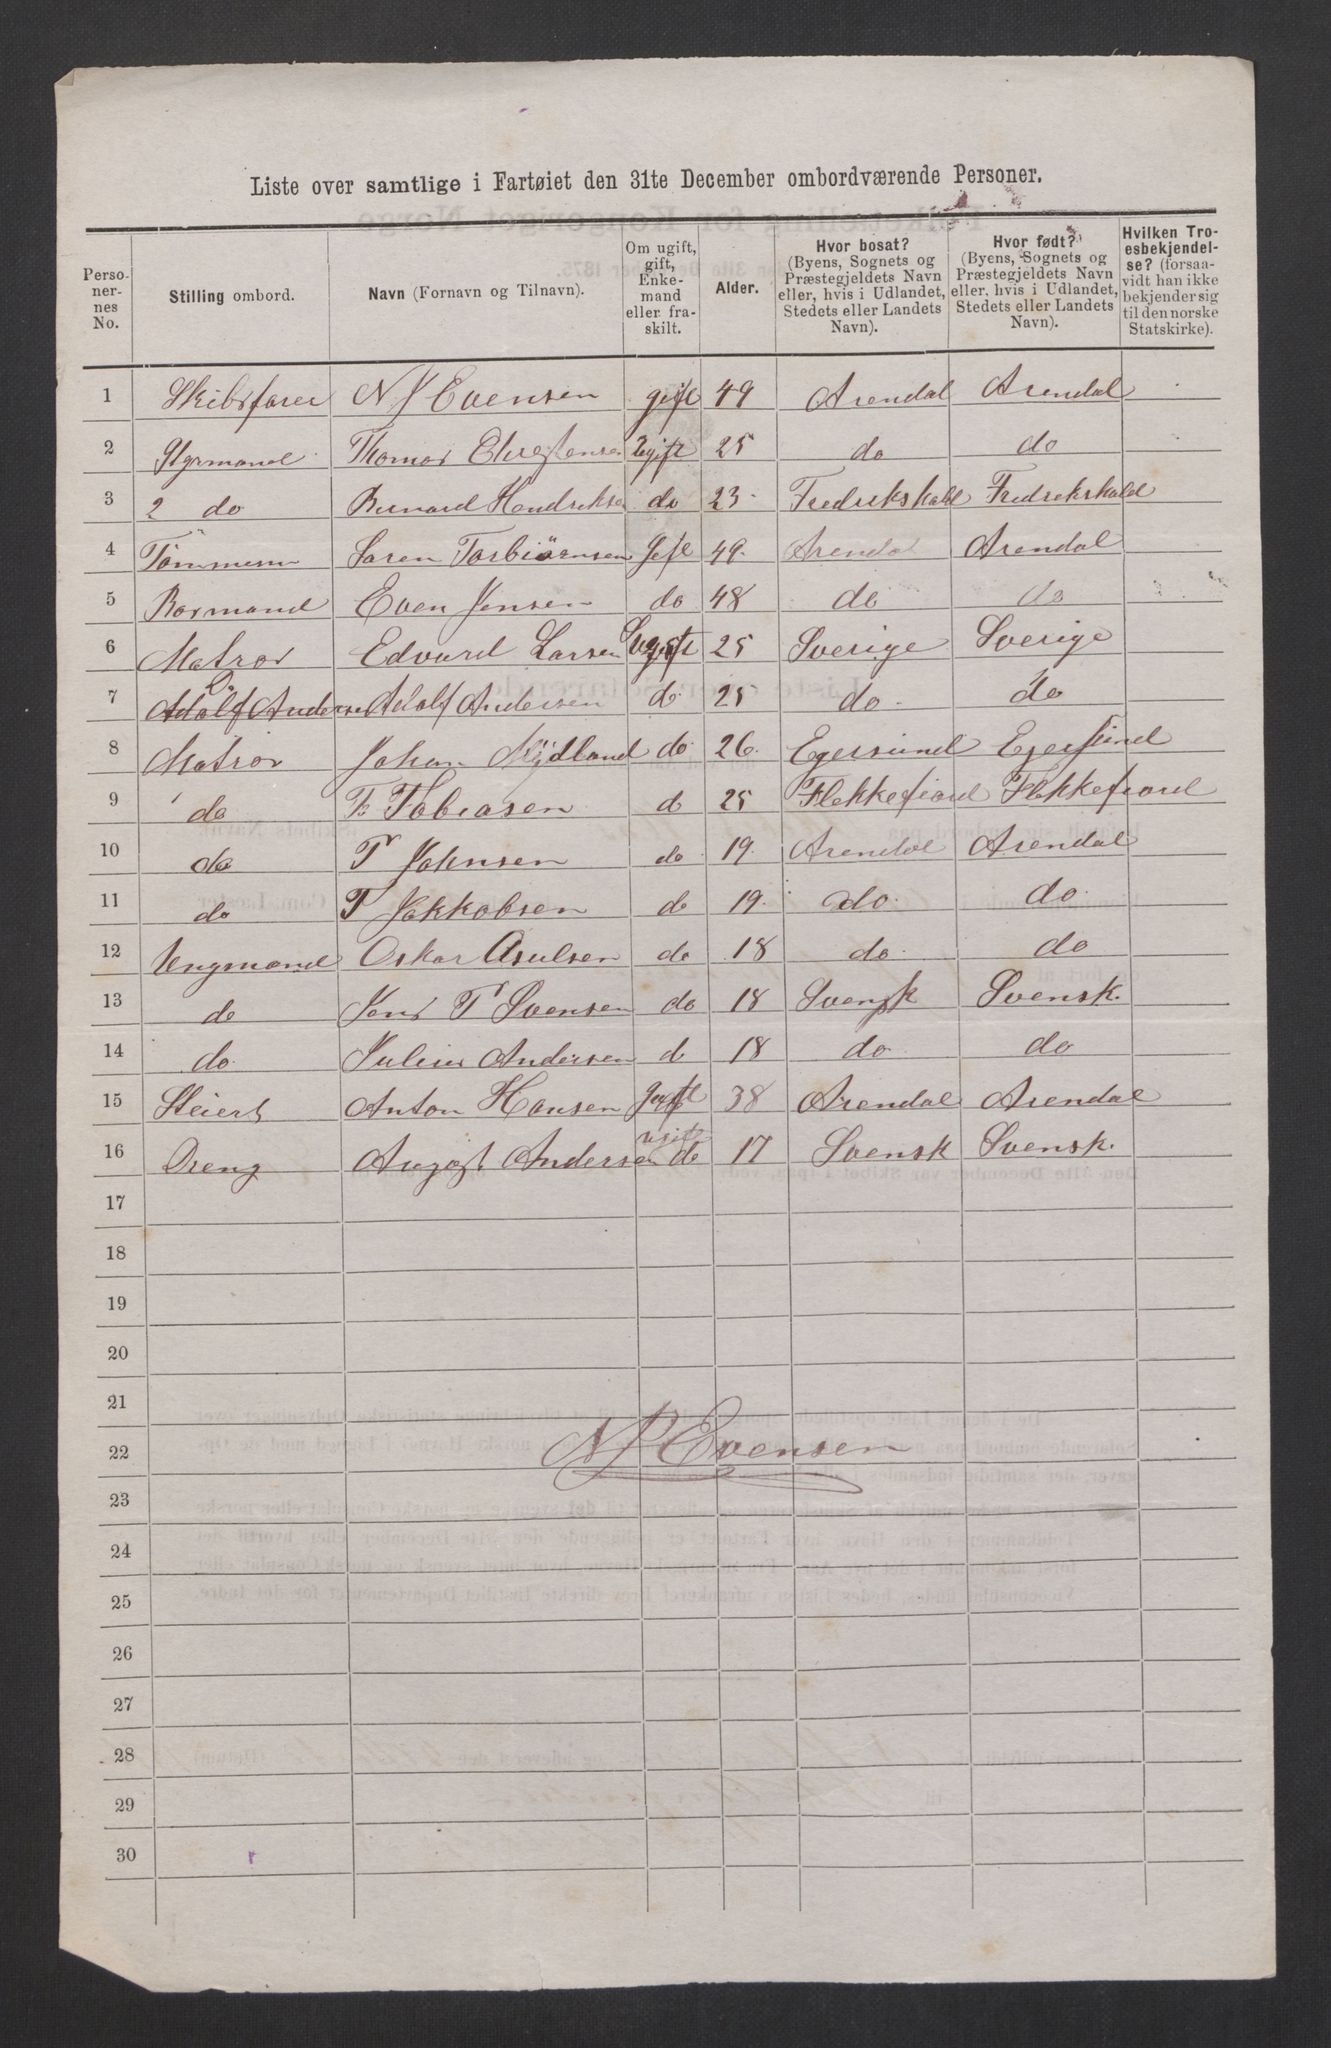 Liste over samtlige i Fartøiet den 31te December ombordværende Personer.
Perso-nernes No. | Stilling ombord. | Navn (Fornavn og Tilnavn). | Om ugift, gift, Enkemand eller fraskilt. | Alder. | Hvor bosat? (Byens, Sognets og Præstegjeldets Navn eller, hvis i Udlandet, Stedets eller Landets Navn). | Hvor født? (Byens, Sognets og Præstegjeldets Navn eller, hvis i Udlandet, Stedets eller Landets Navn). | Hvilken Troesbekjendelse? (forsaavidt han ikke bekjender sig til den norske Statskirke).
1 Skibsfører N J Evensen gift 49 Arendal Arendal
2 Styrmand Thomas Ugift 25 do do
3 2 do Bernard Hendriksen do 23 Fredrikshald Fredrikshald
4 Tømmerm Søren Torbiörnsen Gift 49 Arendal Arendal
5 Boesmand Even Jensen do 48 do do
6 Matros Edvard Larsen Ugift 25 Sverige Sverige
7 Do Adolf Andersen Adolf Andersen do 25 do do
8 Matros Johan Mydland do 26 Egersund Egersund
9 do F Tobiasen do 25 Flekkefiord Flekkefiord
10 do T Johnsen do 19 Arendal Arendal
11 do T Jakkobsen do 19 do do
12 Ungmand Oskar Asulsen do 18 do do
13 do Jens T Svensen do 18 Svensk Svensk.
14 do Julius Andersen do 18 do do
15 Steiert Anton Hansen Gift 38 Arendal Arendal
16 Dreng August Andersen ugift do 17 Svensk Svensk.
17
18
19
20
21
22 N J Evensen
23
24
25
26
27
28
29
30